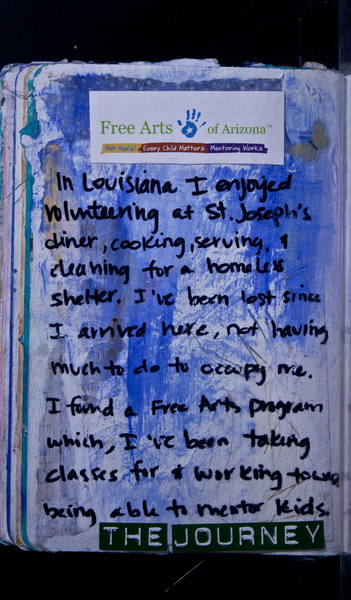 Free Arts of Arizona™
Art Heals Every Child Matters Mentoring Works
In Louisiana I enjoyed
volunteering at St. Joseph's
diner, cooking, serving, &
cleaning for a homeless
shelter. I've been lost since
I arrived here, not having
much to do to occupy me.
I found a Free Arts program
which, I 've been taking
classes for & working toward
being able to mentor kids.
THE JOURNEY